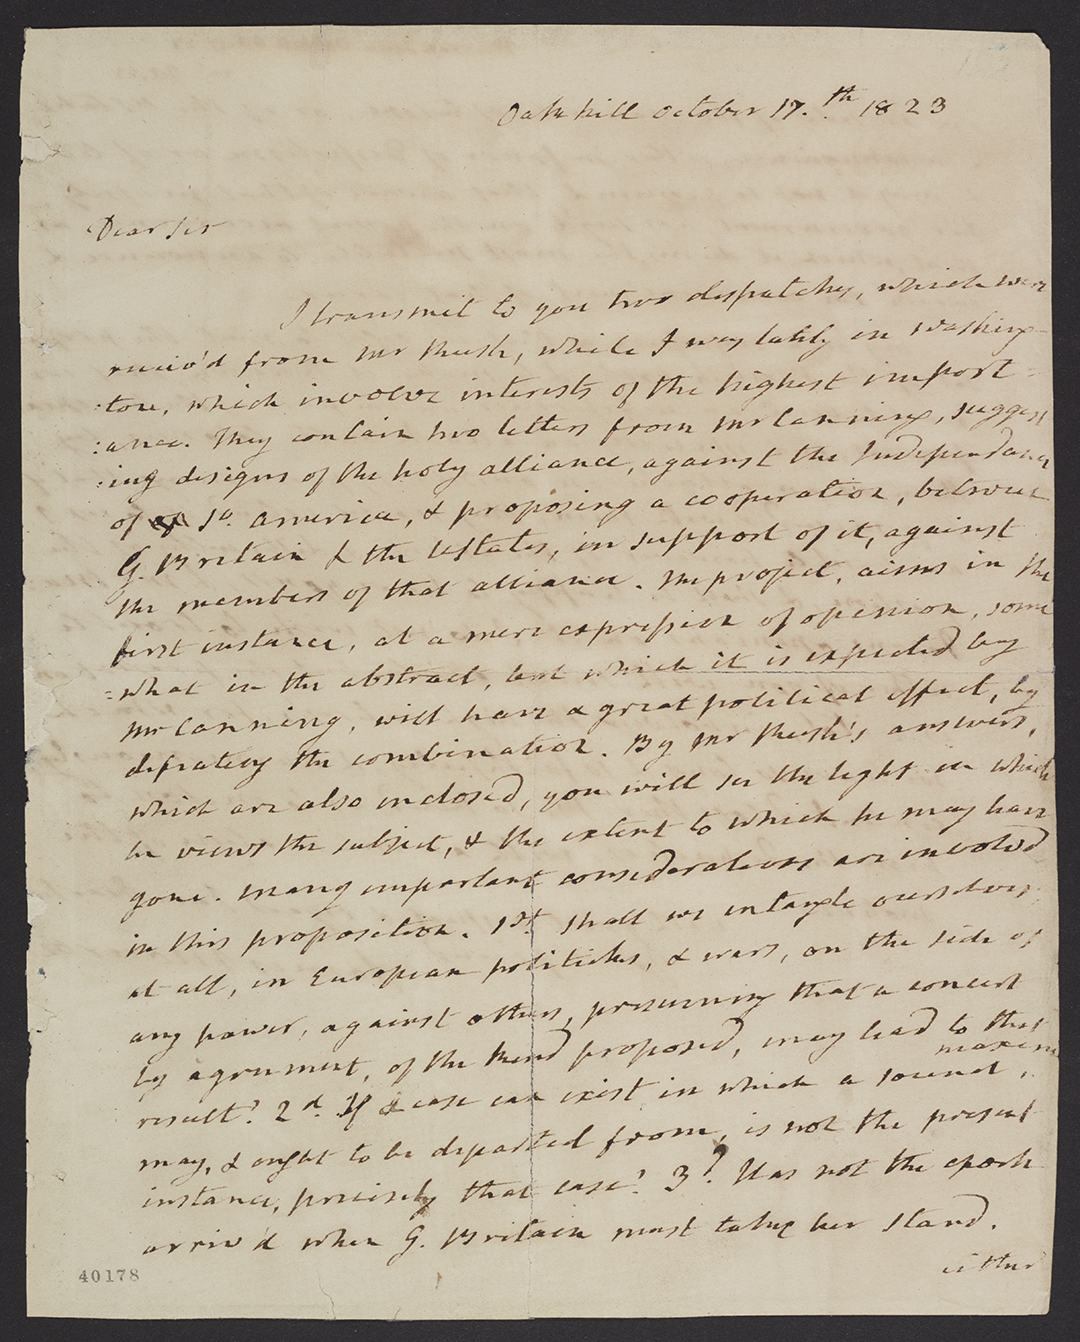 Oakhill October 17.th 1823
Dear Sir
I transmit to you two dispatches, which were
receiv'd from Mr Rush, while I was lately in Washing-
:ton, which involve interests of the highest import-
:ance. They contain two letters from Mr Canning, suggest
:ing designs of the holy alliance, against the Independance
of So. America, & proposing a cooperation, between
G. Britain & the UStates, in support of it, against
the members of that alliance. The project, aims in the
first instance, at a mere expression of opinion, some
=what in the abstract, but which it is expected by
Mr Canning, will have a great political effect, by
defeating the combination. By Mr Rush's answers,
which are also inclosed, you will see the light in which
he views the subject, & the extent to which he may have
gone. Many important considerations are involved
in this proposition. 1st Shall we entangle ourselves,
at all, in European politicks, & wars, on the side of
any power, against others, presuming that a concert
by agreement, of the kind proposed, may lead to that
result? 2d. If a case can exist in which a sound maxim
may, & ought to be departed from, is not the present
instance, precisely that case? 3d. Has not the epoch
arriv'd when G. Britain must take her stand,
either
40178